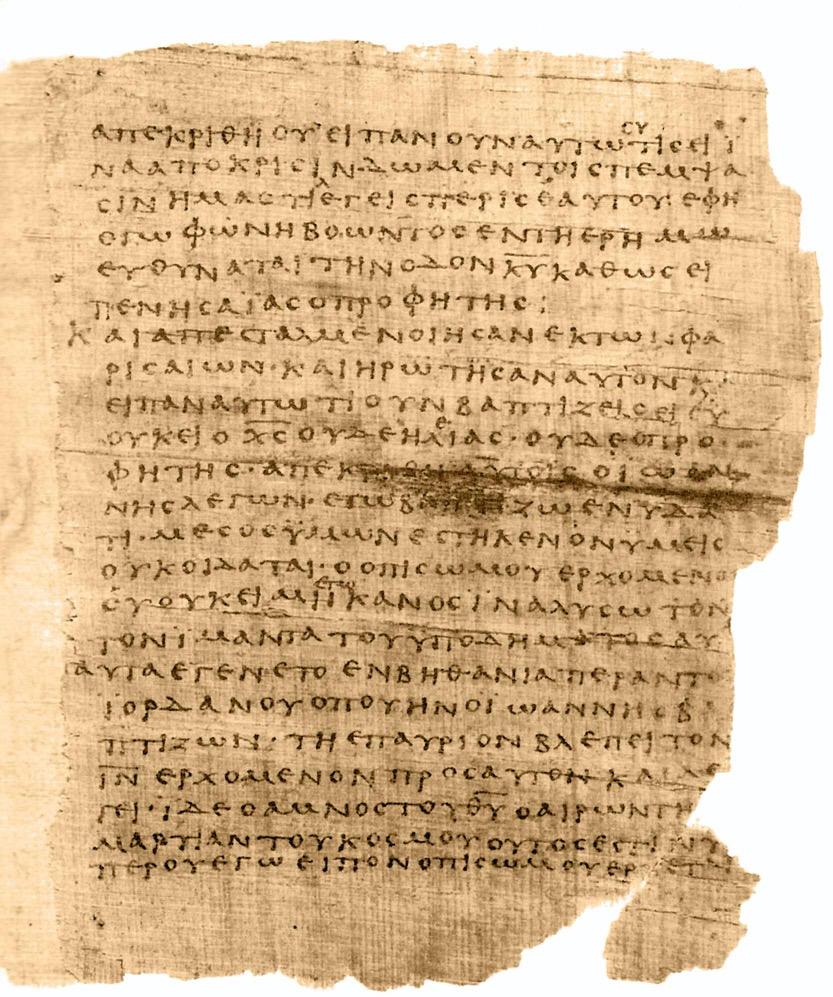 ΑΠΕΚΡΙΘΗ ΟΥ ΕΙΠΑΝ ΟΥΝ ΑΥΤΩ ΤΙϹ ΕΙ Ϊ
ΝΑ ΑΠΟΚΡΙϹΙΝ ΔΩΜΕΝ ΤΟΙϹ ΠΕΜΨΑ
ϹΙΝ ΗΜΑϹ ΤΙ ΛΕΓΕΙϹ ΠΕΡΙ ϹΕΑΥΤΟΥ· ΕΦΗ
ΕΓΩ ΦΩΝΗ ΒΟΩΝΤΟϹ ΕΝ ΤΗ ΕΡΗΜΩ
ΕΥΘΥΝΑΤΑΙ ΤΗΝ ΟΔΟΝ Κ̅Υ̅ ΚΑΘΩϹ ΕΙ
ΠΕΝ ΗϹΑΪΑϹ Ο ΠΡΟΦΗΤΗϹ :
ΚΑΙ ΑΠΕϹΤΑΛΜΕΝΟΙ ΗϹΑΝ ΕΚ ΤΩΝ ΦΑ
ΡΙϹΑΙΩΝ· ΚΑΙ ΗΡΩΤΗϹΑΝ ΑΥΤΟΝ Κ
ΕΙΠΑΝ ΑΥΤΩ ΤΙ ΟΥΝ ΒΑΠΤΙΖΕΙϹ ΕΙ ϹΥ
ΟΥΚ ΕΙ Ο Χ̅Ϲ̅ ΟΥΔΕ ΗΛΕΙΑϹ· ΟΥΔΕ Ο ΠΡΟ
ΦΗΤΗϹ· ΑΠΕΚΡΙΘΗ ΑΥΤΟΙϹ Ο ΙΩΑΝ
ΝΗϹ ΛΕΓΩΝ· ΕΓΩ ΒΑΠΤΙΖΩ ΕΝ ΥΔΑ
ΤΙ· ΜΕϹΟϹ ΫΜΩΝ ΕϹΤΗΚΕΝ ΟΝ ΥΜΕΙϹ
ΟΥΚ ΟΙΔΑΤΑΙ· Ο ΟΠΙϹΩ ΜΟΥ ΕΡΧΟΜΕΝΟ
ϹΥ ΟΥΚ ΕΙΜΙ ΕΓΩ ΙΚΑΝΟϹ ΙΝΑ ΛΥϹΩ ΤΟΝ
ΤΟΝ ΙΜΑΝΤΑ ΤΟΥ ΥΠΟΔΗΜΑΤΟϹ ΑΥ
ΑΥΤΑ ΕΓΕΝΕΤΟ ΕΝ ΒΗΘΑΝΙΑ ΠΕΡΑΝ ΤΟ
ΪΟΡΔΑΝΟΥ ΟΠΟΥ ΗΝ Ο ΙΩΑΝΝΗϹ ΒΑ
ΠΤΙΖΩΝ· ΤΗ ΕΠΑΥΡΙΟΝ ΒΛΕΠΕΙ ΤΟΝ
Ι̅Ν̅ ΕΡΧΟΜΕΝΟΝ ΠΡΟϹ ΑΥΤΟΝ ΚΑΙ ΛΕ
ΓΕΙ· ΪΔΕ Ο ΑΜΝΟϹ ΤΟΥ Θ̅Υ̅ Ο ΑΙΡΩΝ ΤΗ
ΑΜΑΡΤΙΑΝ ΤΟΥ ΚΟϹΜΟΥ ΟΥΤΟϹ ΕϹΤΙΝ Υ
ΠΕΡ ΟΥ ΕΓΩ ΕΙΠΟΝ ΟΠΙϹΩ ΜΟΥ ΕΡ